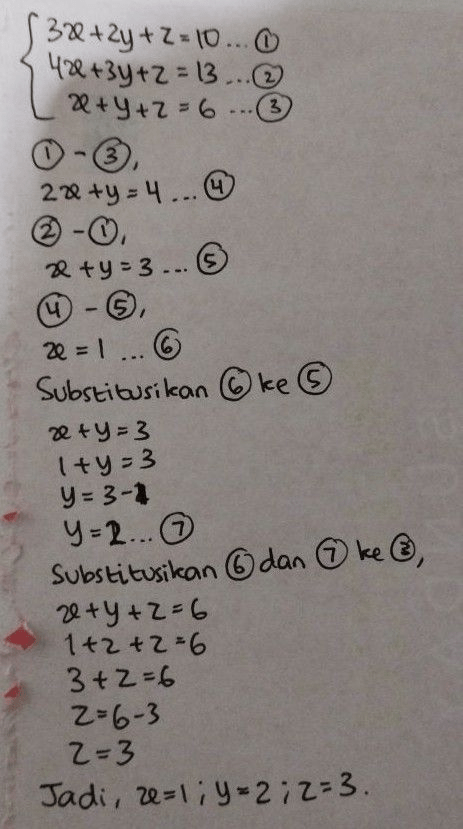 3x+2y+z=10...①
4x+3y+z=13...②
x+y+z=6...③
①-③,
2x+y=4...④
②-①,
x+y=3...⑤
④-⑤,
x=1...⑥
Substitusikan ⑥ ke ⑤
x+y=3
1+y=3
y=3-1
y=2...⑦
Substitusikan ⑥ dan ⑦ ke ③,
x+y+z=6
1+2+z=6
3+z=6
z=6-3
z=3
Jadi, x=1; y=2; z=3.